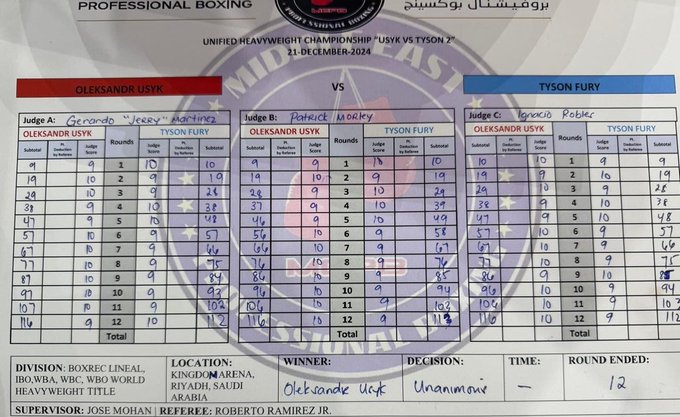 PROFESSIONAL BOXING بروفيشنال بوكسينج
PROFESSIONAL BOXING
UNIFIED HEAVYWEIGHT CHAMPIONSHIP "USYK VS TYSON 2"
21-DECEMBER-2024
OLEKSANDR USYK VS TYSON FURY
Judge A: Gerardo "Jerry" Martinez Judge B: Patrick Morley Judge C: Ignacio Robles
OLEKSANDR USYK Rounds TYSON FURY OLEKSANDR USYK Rounds TYSON FURY OLEKSANDR USYK Rounds TYSON FURY
Subtotal Pt. Deduction by Referee Judge Score Judge Score Pt. Deduction by Referee Subtotal Subtotal Pt. Deduction by Referee Judge Score Judge Score Pt. Deduction by Referee Subtotal Subtotal Pt. Deduction by Referee Judge Score Judge Score Pt. Deduction by Referee Subtotal
9 9 1 10 10 9 9 1 10 10 10 10 1 9 9
19 10 2 9 19 19 10 2 9 19 19 9 2 10 19
29 10 3 9 28 28 9 3 10 29 29 10 3 9 28
38 9 4 10 38 37 9 4 10 39 38 9 4 10 38
47 9 5 10 48 46 9 5 10 49 47 9 5 10 48
57 10 6 9 57 56 10 6 9 58 57 10 6 9 57
67 10 7 9 66 66 10 7 9 67 67 10 7 9 66
77 10 8 9 75 76 10 8 9 76 77 10 8 9 75
87 10 9 9 84 86 10 9 9 85 86 9 9 10 85
97 10 10 9 93 96 10 10 9 94 96 10 10 9 94
107 10 11 9 102 106 10 11 9 103 106 10 11 9 103
116 9 12 10 112 116 10 12 9 112 116 10 12 9 112
Total Total Total
MIDDLE EAST
MEPB
PROFESSIONAL BOXING
DIVISION: BOXREC LINEAL, IBO,WBA, WBC, WBO WORLD HEAVYWEIGHT TITLE
LOCATION: KINGDOM ARENA, RIYADH, SAUDI ARABIA
WINNER: Oleksandr Usyk
DECISION: Unanimous
TIME: —
ROUND ENDED: 12
SUPERVISOR: JOSE MOHAN REFEREE: ROBERTO RAMIREZ JR.